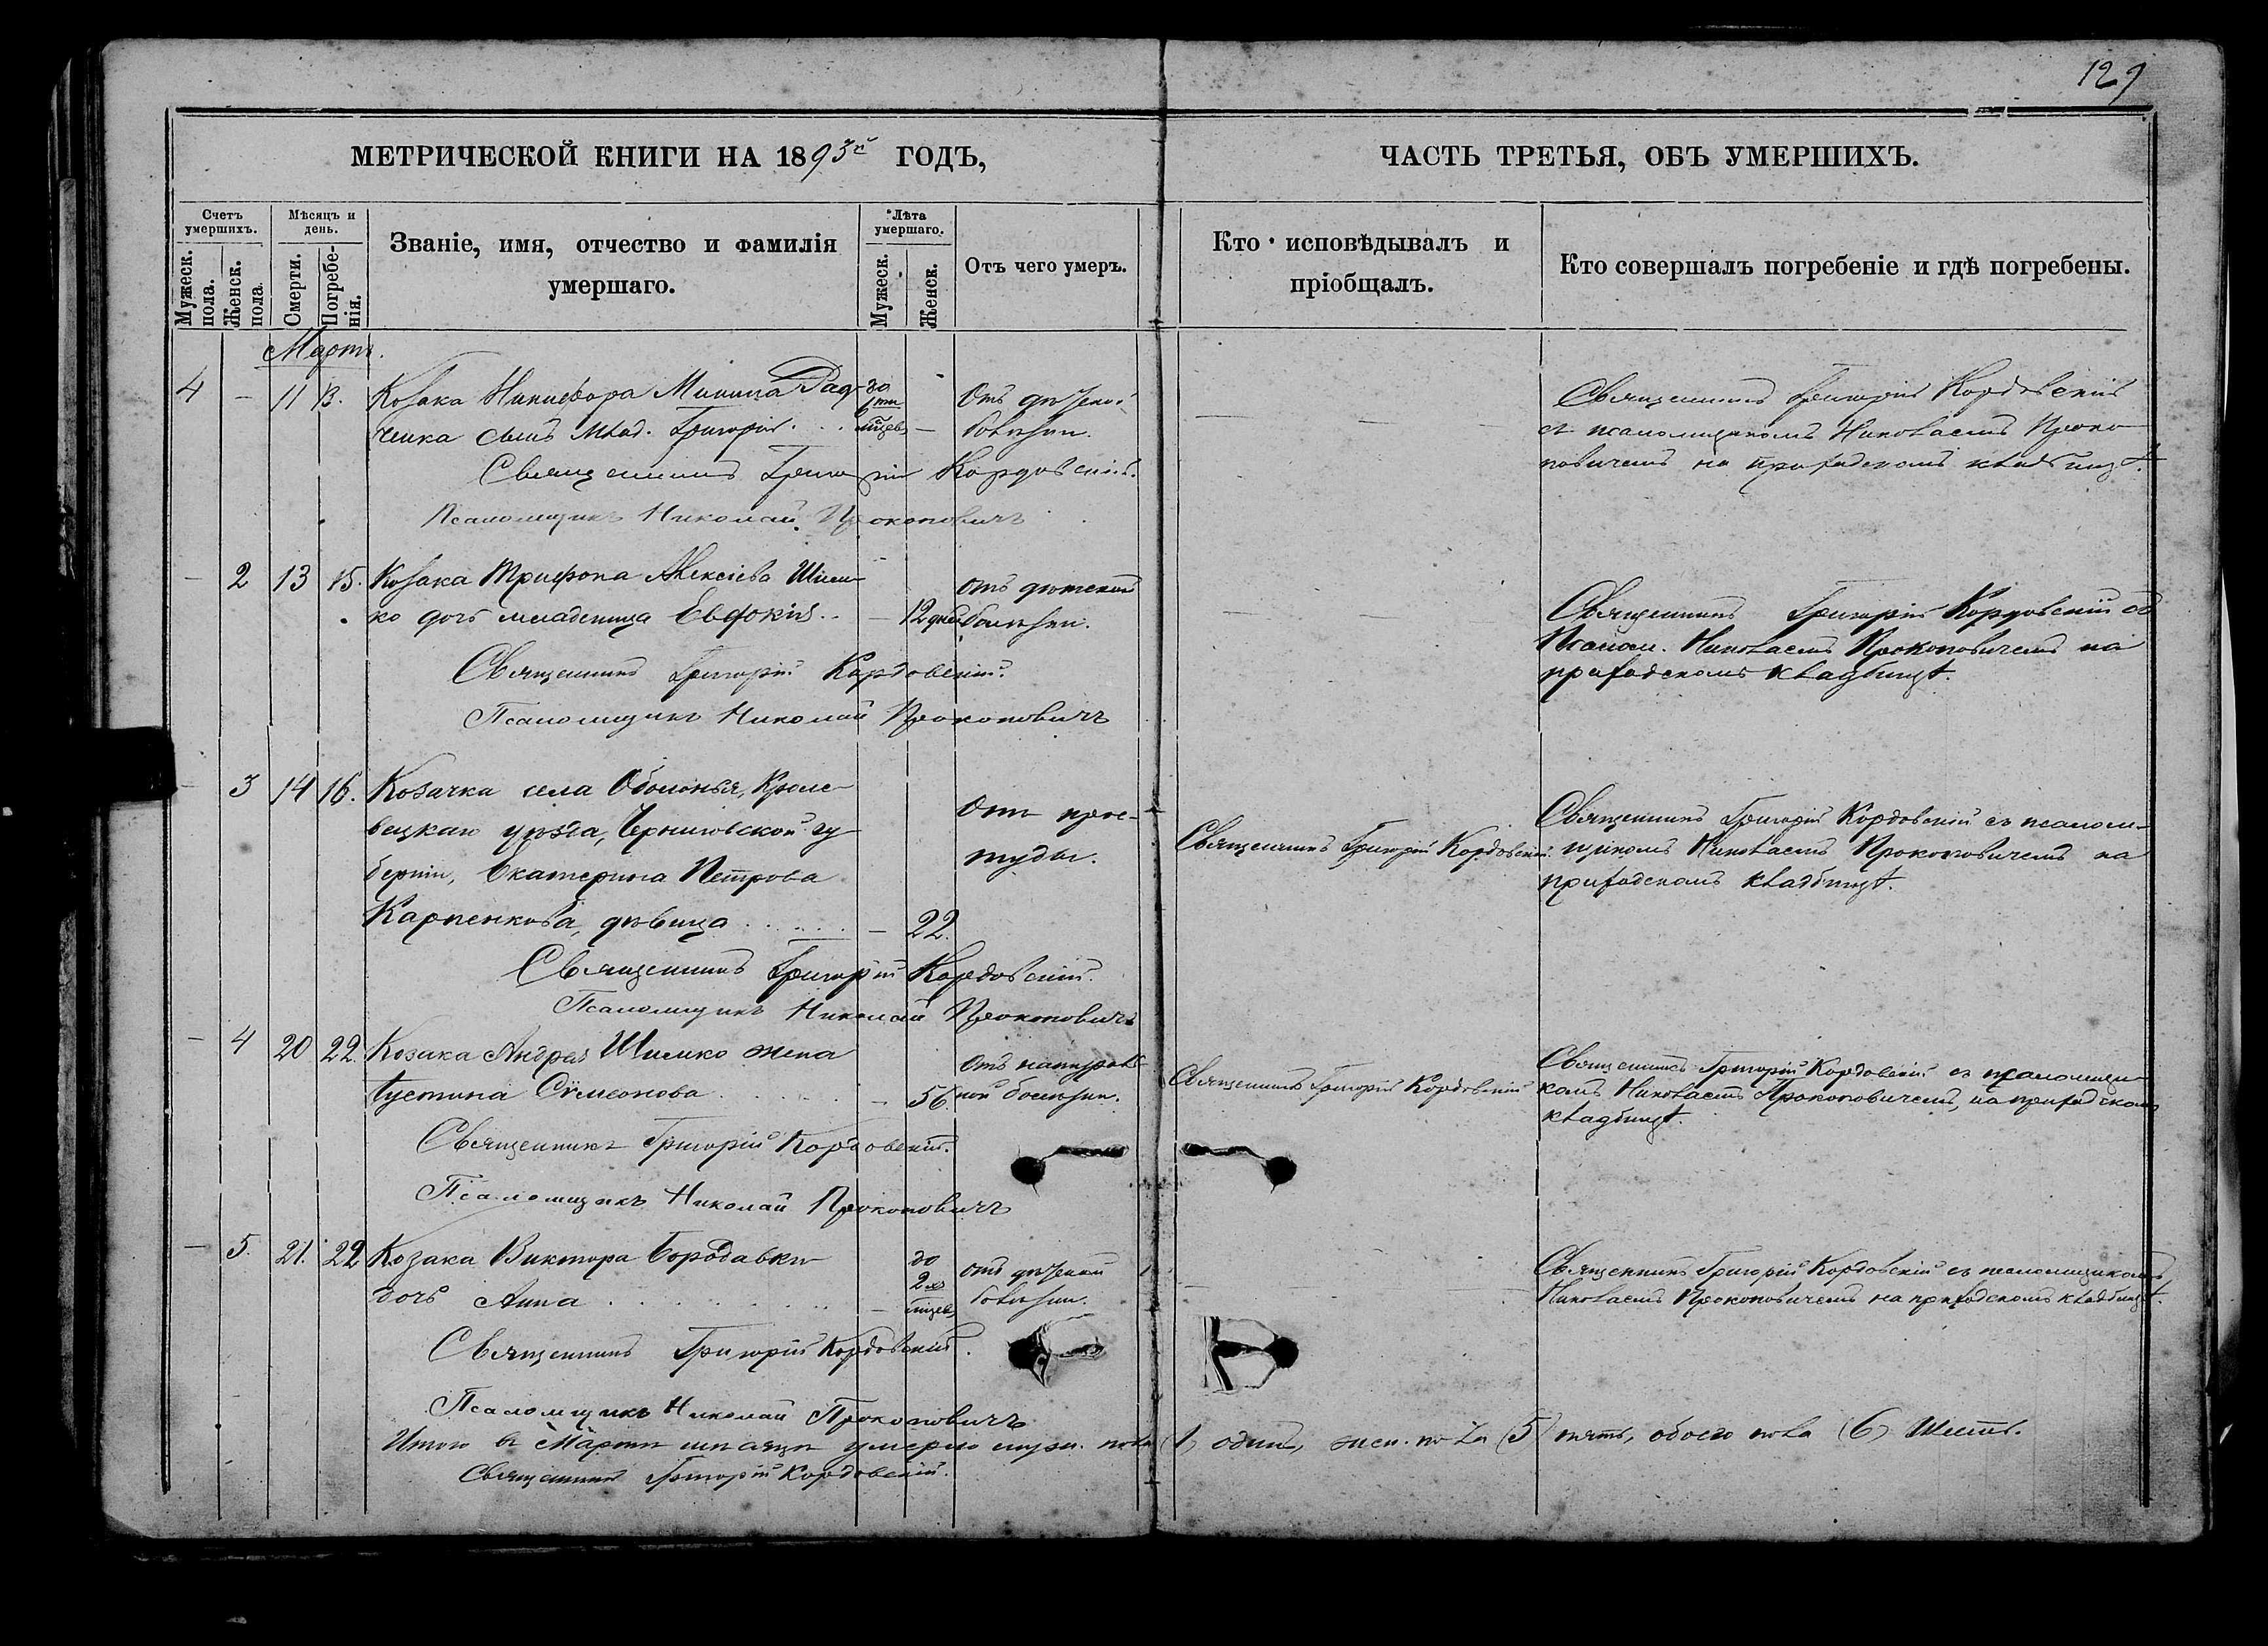 129
МЕТРИЧЕСКОЙ КНИГИ НА 1893й ГОДЪ,
ЧАСТЬ ТРЕТЬЯ, ОБЪ УМЕРШИХЪ.
Счетъ умершихъ.
Мужеск. пола.
Женск. пола.
Мѣсяцъ и день.
Смерти.
Погребенія.
Званіе, имя, отчество и фамилія
умершаго.
Лѣта умершаго.
Мужеск.
Женск.
Отъ чего умеръ.
Кто исповѣдывалъ и
пріобщалъ.
Кто совершалъ погребеніе и гдѣ погребены.
Мартъ.
4 – 11 13. Козака Никифора Минина Рад-
ченка сынъ млад. Григорій . . . до 6ти мѣсяц. – Отъ дѣтской
болѣзни.
Священникъ Григорій Кордовскій
съ псаломщикомъ Николаемъ Проко-
повичемъ на приходскомъ кладбищѣ.
Священникъ Григорій Кордовскій.
Псаломщикъ Николай Прокоповичъ
– 2 13 15. Козака Трифона Алексіева Шим-
ко дочь младеница Евдокія . . – 12 дней
отъ дѣтской
болѣзни.
Священникъ Григорій Кордовскій съ
Псалом. Николаемъ Прокоповичемъ на
приходскомъ кладбищѣ.
Священникъ Григорій Кордовскій.
Псаломщикъ Николай Прокоповичъ
– 3 14 16. Козачка села Оболонья, Кроле-
вецкаго уѣзда, Черниговской гу-
берніи, Екатерина Петрова
Карпенкова, дѣвица . . . . . . – 22.
Отъ прос-
туды.
Священникъ Григорій Кордовскій.
Священникъ Григорій Кордовскій съ псалом-
щикомъ Николаемъ Прокоповичемъ на
приходскомъ кладбищѣ.
Священникъ Григорій Кордовскій.
Псаломщикъ Николай Прокоповичъ
– 4 20 22. Козака Андрея Шимко жена
Іустина Сѵмеонова . . . . . – 56.
Отъ натураль-
ной болѣзни.
Священникъ Григорій Кордовскій
Священникъ Григорій Кордовскій съ псаломщи-
комъ Николаемъ Прокоповичемъ, на приходскомъ
кладбищѣ.
Священникъ Григорій Кордовскій.
Псаломщикъ Николай Прокоповичъ
– 5. 21. 22 Козака Виктора Бородавки
дочь Анна . . . . . . . . . – до 2хъ мѣсяц.
отъ дѣтской
болѣзни.
Священникъ Григорій Кордовскій съ псаломщикомъ
Николаемъ Прокоповичемъ на приходскомъ кладбищѣ.
Священникъ Григорій Кордовскій.
Псаломщикъ Николай Прокоповичъ
Итого въ Мартѣ мѣсяцѣ умерло муж. пола (1) одинъ, жен. пола (5) пять, обоего пола (6) Шесть.
Священникъ Григорій Кордовскій.